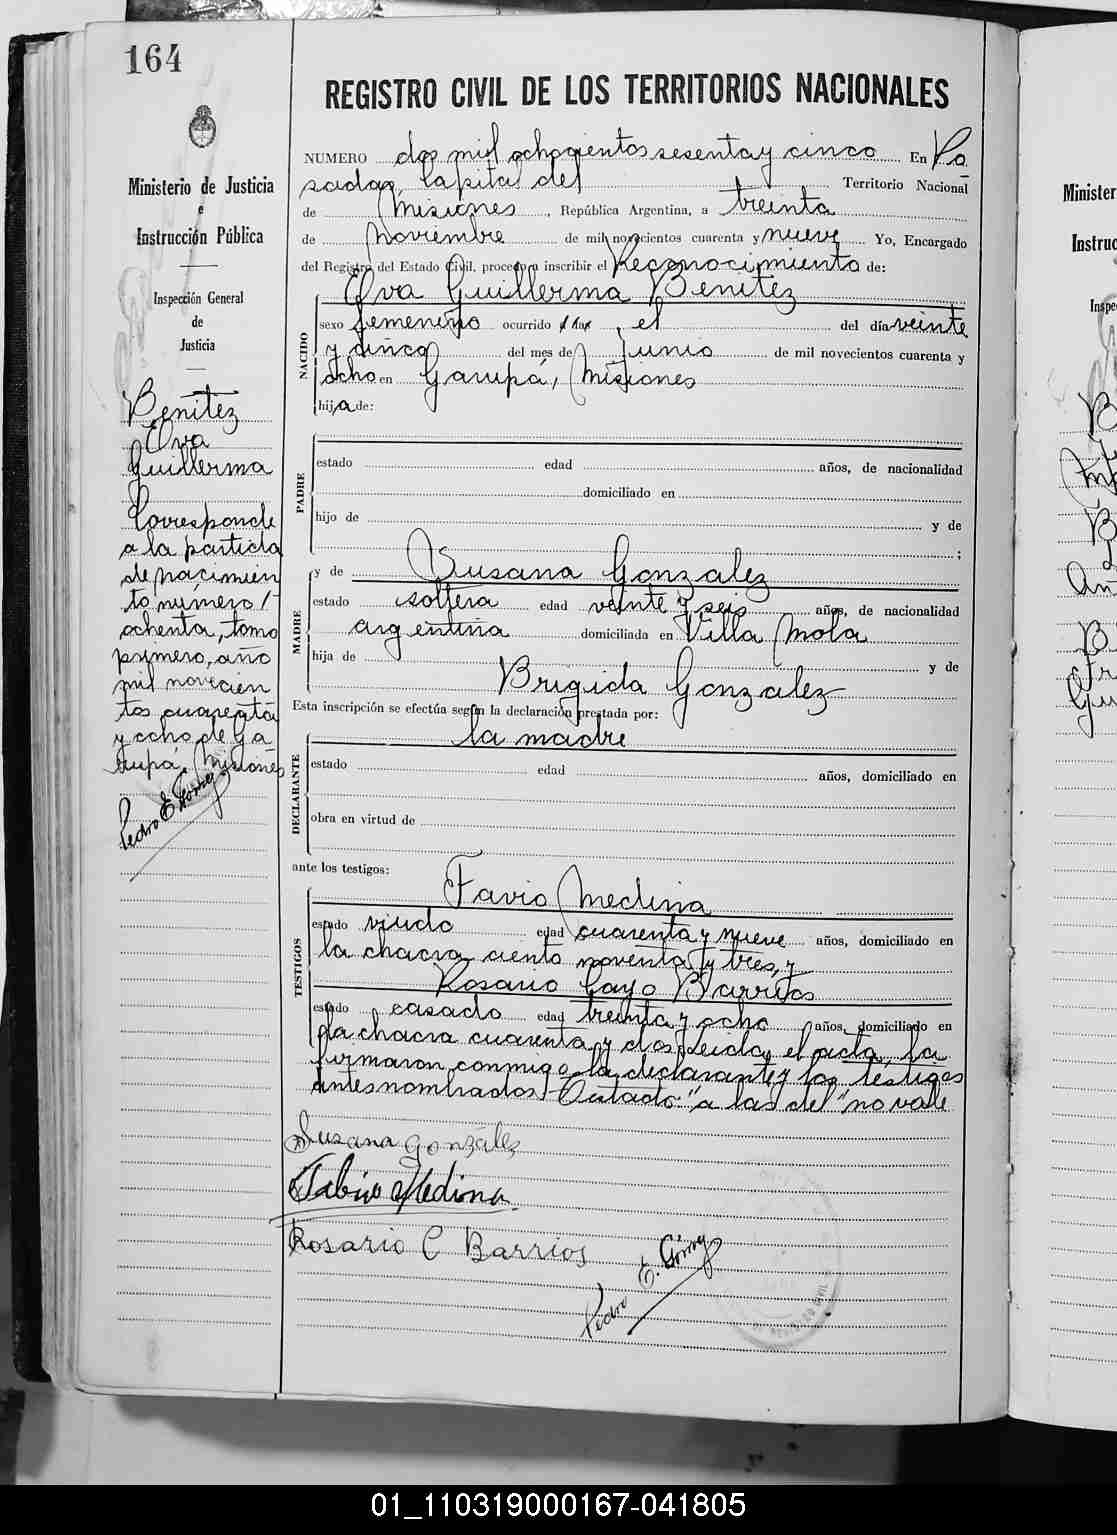 164
REGISTRO CIVIL DE LOS TERRITORIOS NACIONALES
Ministerio de Justicia
e
Instrucción Pública
Inspección General
de
Justicia
Benitez
Elva
Guillerma
Corresponde
a la partida
de nacimien
to número
ochenta, tomo
primero, año
mil novecien
tos cuarenta
y ocho de Ga
rupá, Misiones
Pedro E. Gómez
NUMERO dos mil ochocientos sesenta y cinco En Po
sadas, Capital del Territorio Nacional
de Misiones, República Argentina, a treinta
de noviembre de mil novecientos cuarenta y nueve Yo, Encargado
del Registro del Estado Civil, procedo a inscribir el Reconocimiento de:
Elva Guillerma Benitez
NACIDO
sexo femenino ocurrido a las, el del día veinte
y cinco del mes de junio de mil novecientos cuarenta y
ocho en Garupá, Misiones
hija de:
PADRE
estado edad años, de nacionalidad
domiciliado en
hijo de y de
;
MADRE
y de Susana Gonzalez
estado soltera edad veinte y seis años, de nacionalidad
argentina domiciliada en Villa Mola
hija de y de
Brigida Gonzalez
Esta inscripción se efectúa según la declaración prestada por:
la madre
DECLARANTE
estado edad años, domiciliado en
obra en virtud de
ante los testigos:
TESTIGOS
Favio Medina
estado viudo edad cuarenta y nueve años, domiciliado en
la chacra ciento noventa y tres, y
Rosario Cayo Barrios
estado casado edad treinta y ocho años, domiciliado en
la chacra cuarenta y dos. Leida el acta, la
firmaron conmigo la declarante y los testigos
antes nombrados. Testado: "a las del" no vale
Susana Gonzáles
Fabio Medina
Rosario C Barrios
Pedro E. Gómez
Minister
Instruc
Inspe
01_110319000167-041805